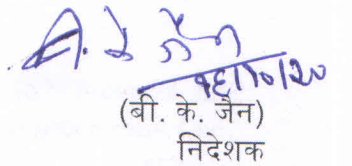 बी. के. जैन
१६/१०/२०
(बी. के. जैन)
निदेशक